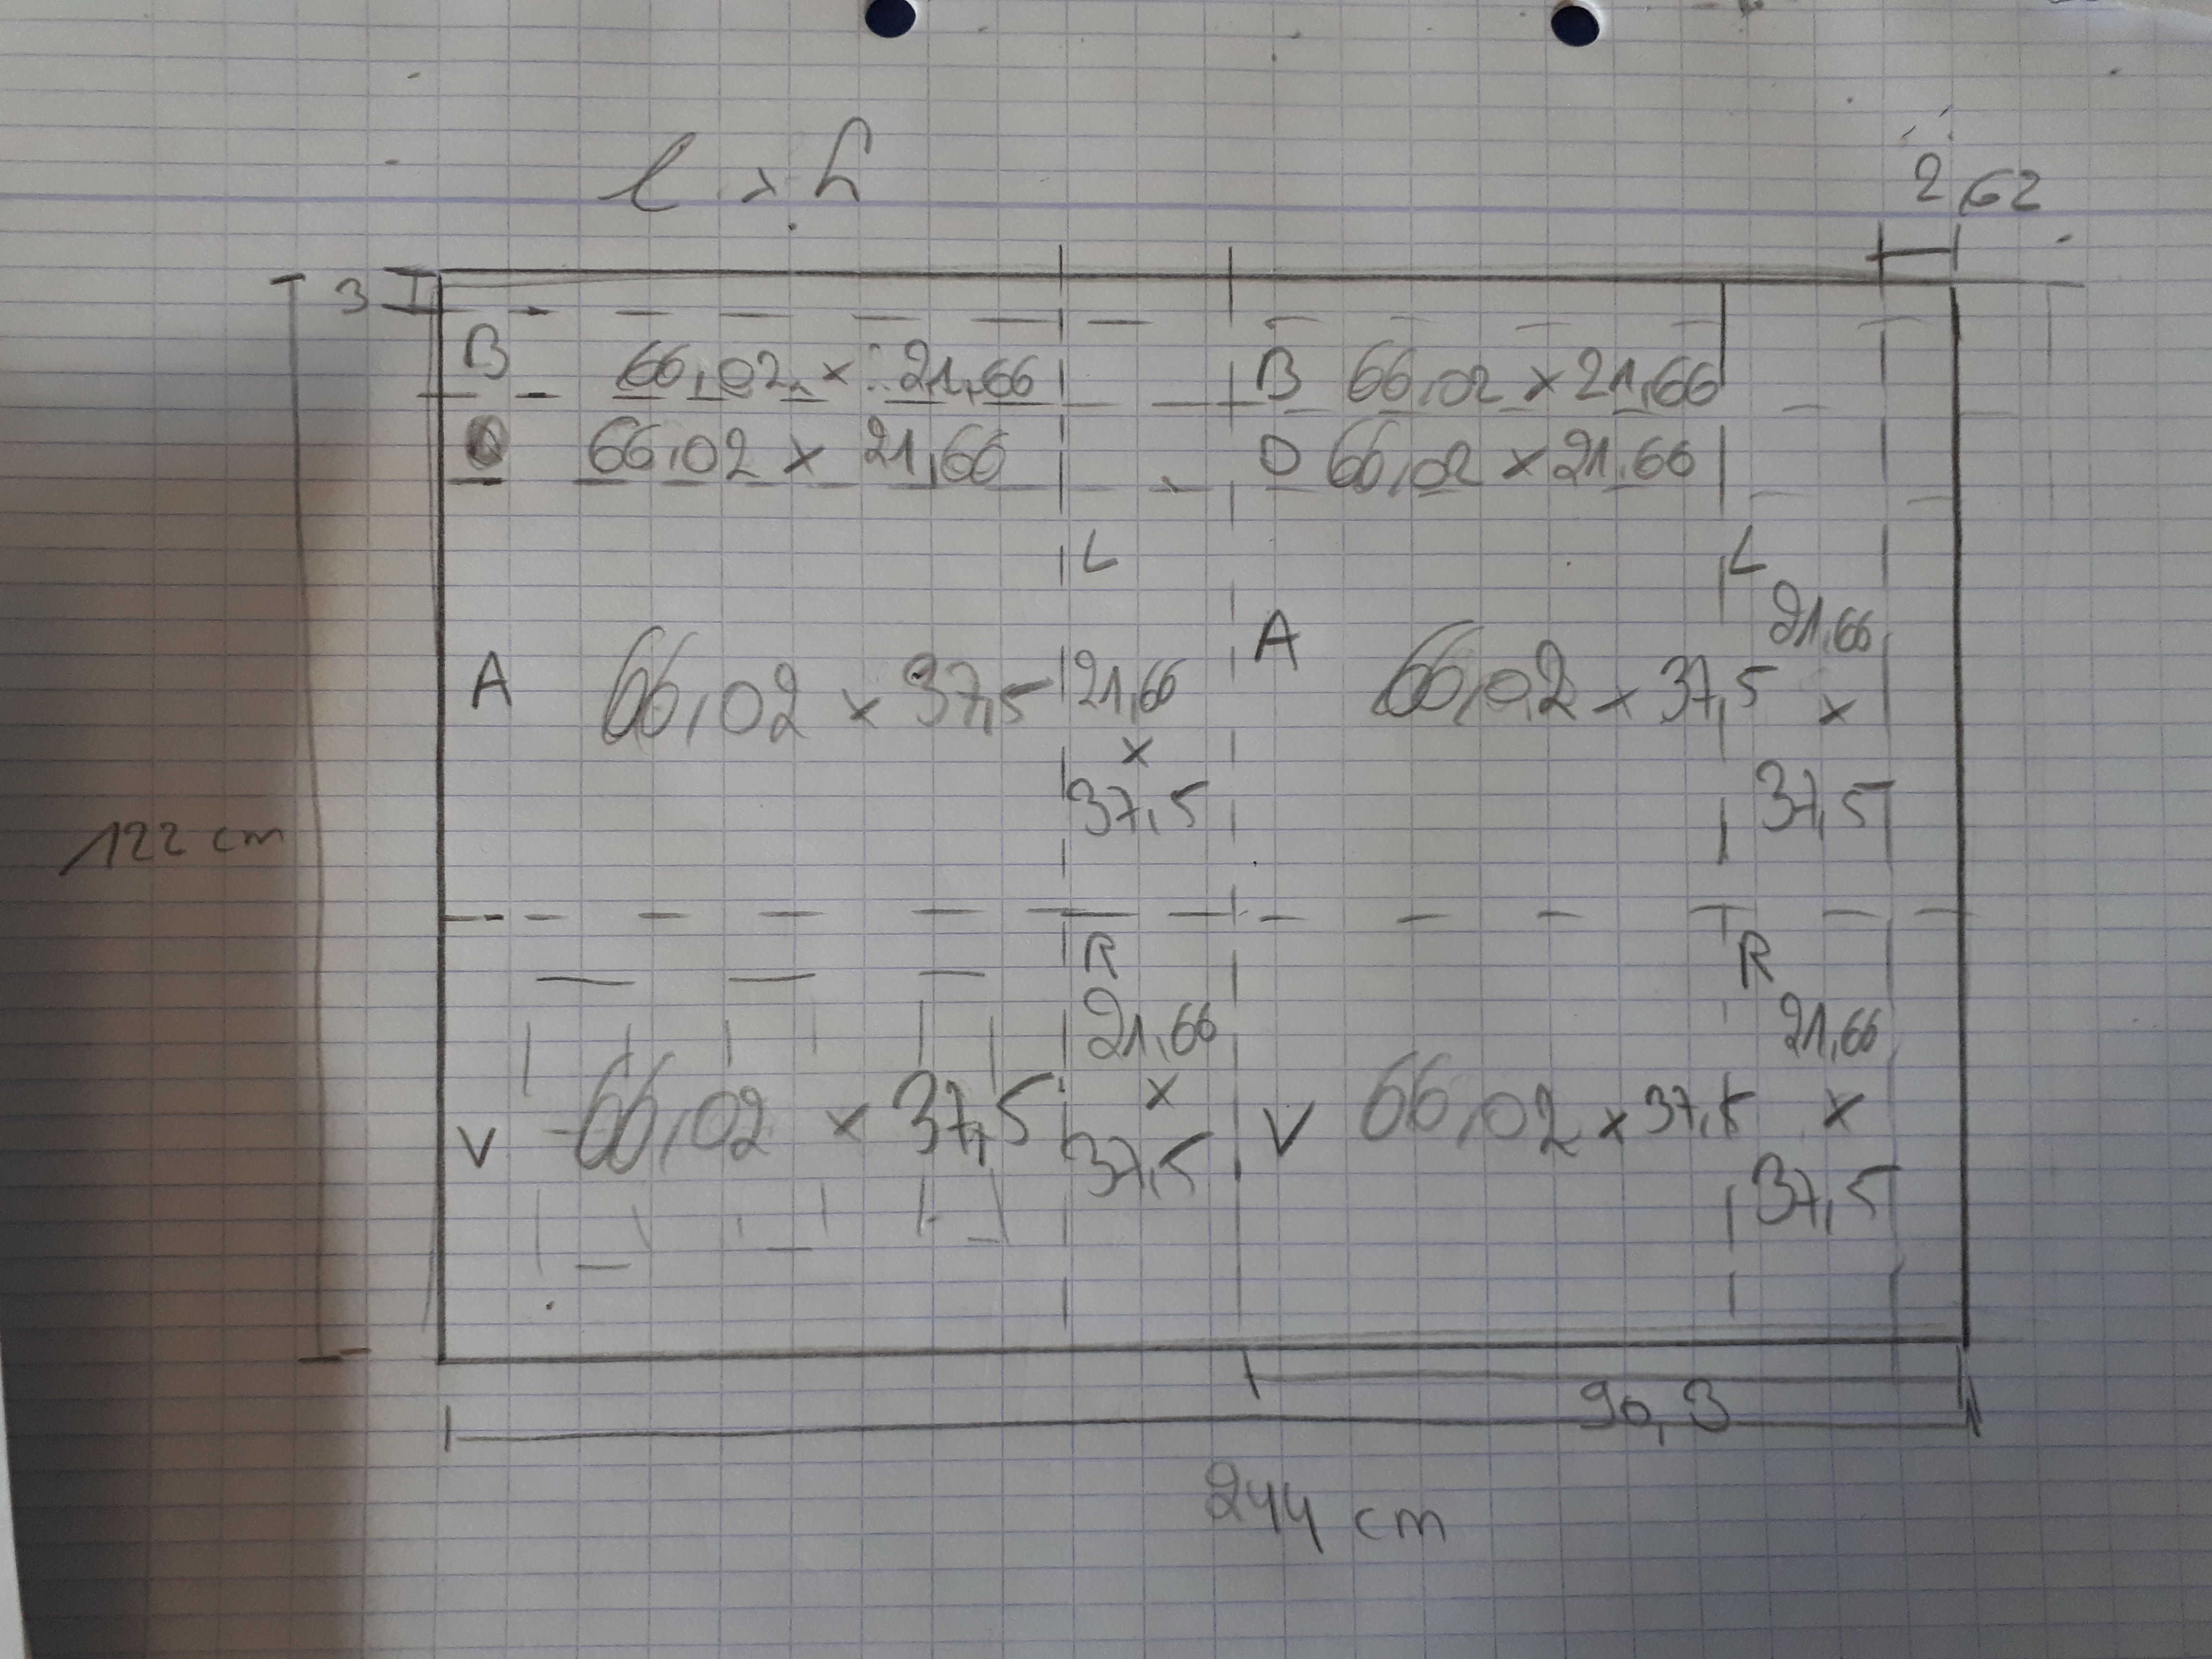 l x h
2,62
3
B 66,02 x 21,66 B 66,02 x 21,66
66,02 x 21,66 D 66,02 x 21,66
L L
21,66
A 66,02 x 37,5 21,66 A 66,02 x 37,5 x
x
37,5 37,5
122 cm
R R
21,66 21,66
V 66,02 x 37,5 x V 66,02 x 37,5 x
37,5 37,5
90,3
244 cm